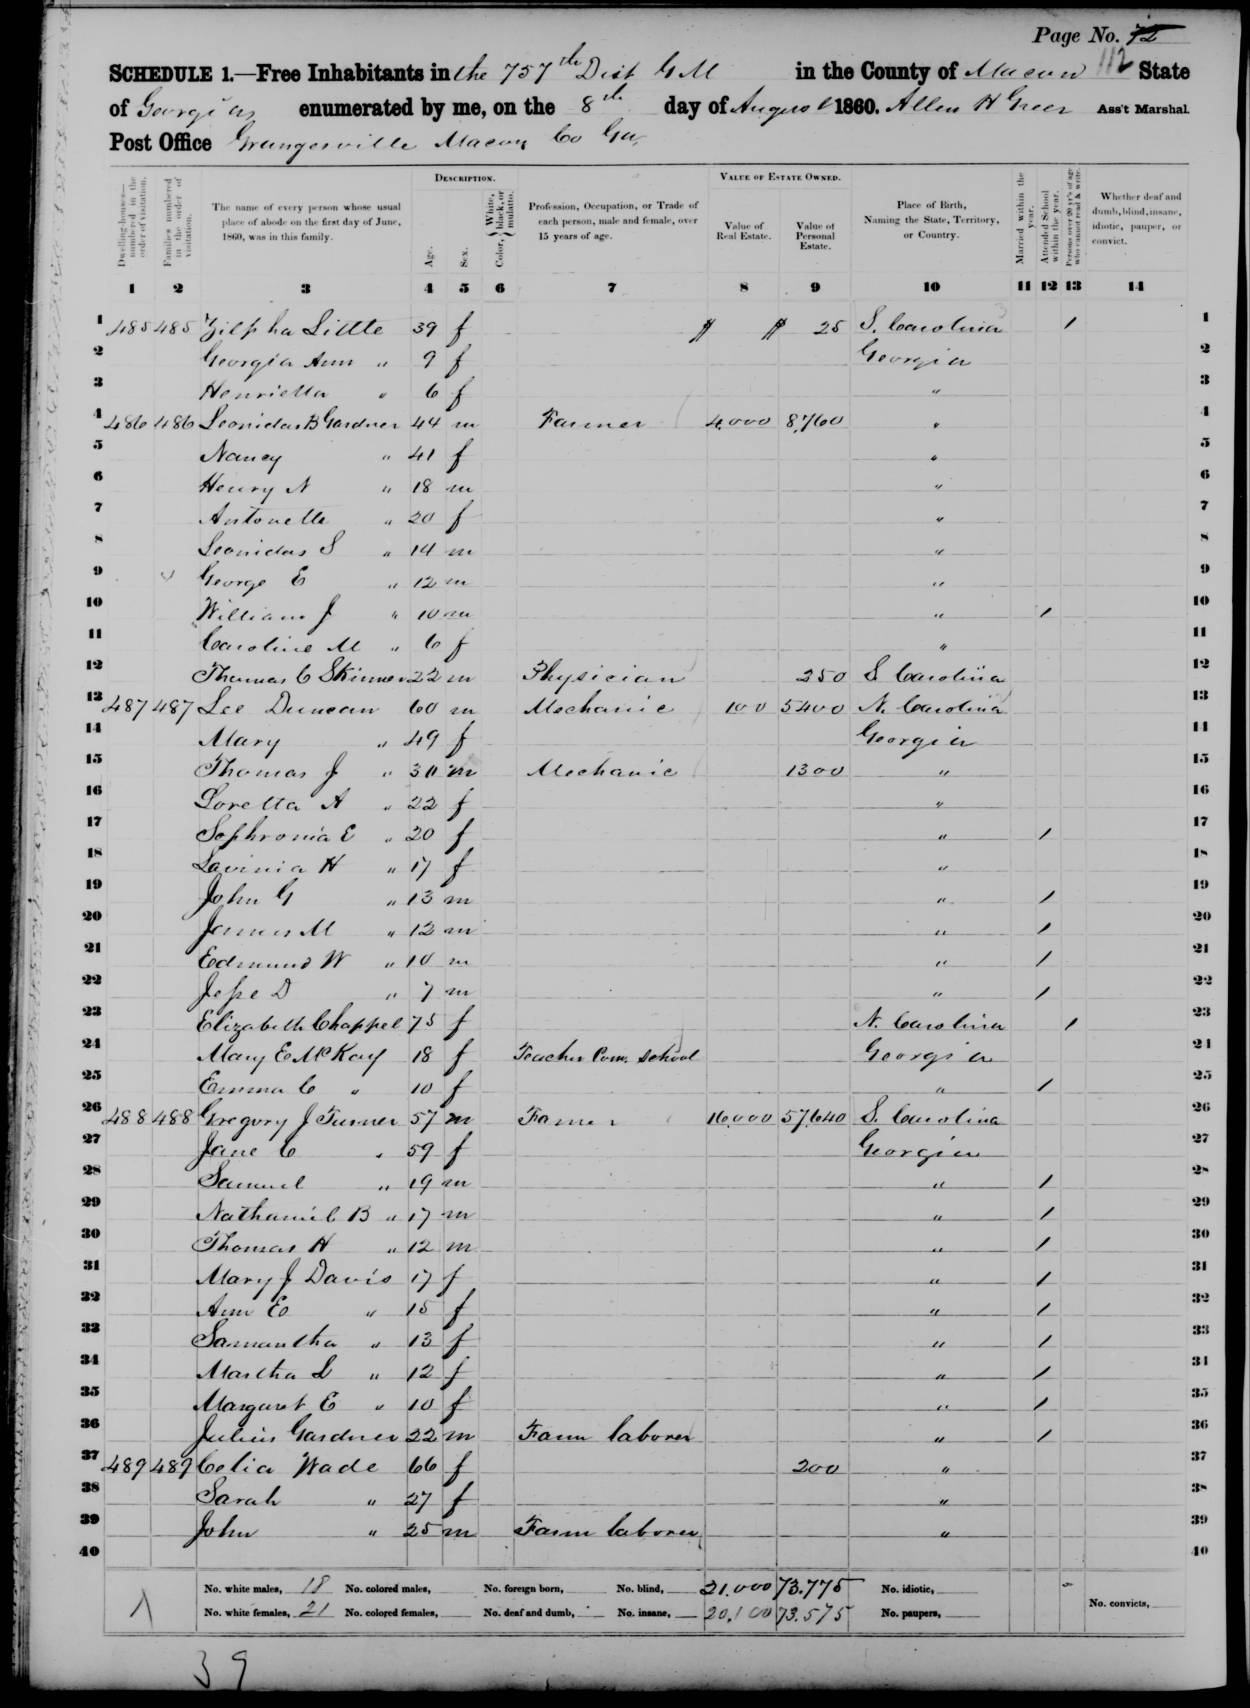 Page No. 72
112
SCHEDULE 1.—Free Inhabitants in the 757th Dist G M in the County of Macon State
of Georgia enumerated by me, on the 8th day of August 1860. Allen H Greer Ass't Marshal.
Post Office Grangerville Macon Co Ga,
Dwelling-houses—numbered in the order of visitation.
Families numbered in the order of visitation.
The name of every person whose usual place of abode on the first day of June, 1860, was in this family.
DESCRIPTION.
Age.
Sex.
Color, { White, black, or mulatto.
Profession, Occupation, or Trade of each person, male and female, over 15 years of age.
VALUE OF ESTATE OWNED.
Value of Real Estate.
Value of Personal Estate.
Place of Birth, Naming the State, Territory, or Country.
Married within the year.
Attended School within the year.
Persons over 20 yr's of age who cannot read & write.
Whether deaf and dumb, blind, insane, idiotic, pauper, or convict.
1 2 3 4 5 6 7 8 9 10 11 12 13 14
1 485 485 Zilpha Little 39 f $ $ 25 S. Carolina / 1
2 Georgia Ann " 9 f Georgia 2
3 Henrietta " 6 f " 3
4 486 486 Leonidas B Gardner 44 m Farmer 4,000 8,760 " 4
5 Nancy " 41 f " 5
6 Henry N " 18 m " 6
7 Antonette " 20 f " 7
8 Leonidas S " 14 m " 8
9 George E " 12 m " 9
10 William J " 10 m " / 10
11 Caroline M " 6 f " 11
12 Thomas C Skinner 22 m Physician 250 S Carolina 12
13 487 487 Lee Duncan 60 m Mechanic 100 5400 N. Carolina 13
14 Mary " 49 f Georgia 14
15 Thomas J " 30 m Mechanic 1300 " 15
16 Loretta A " 22 f " 16
17 Sophronia E " 20 f " / 17
18 Lavinia H " 17 f " 18
19 John G " 13 m " / 19
20 James M " 12 m " / 20
21 Edmund W " 10 m " / 21
22 Jesse D " 7 m " / 22
23 Elizabeth Chappel 75 f N. Carolina / 23
24 Mary E McKay 18 f Teacher Com. School Georgia 24
25 Emma C " 10 f " / 25
26 488 488 Gregory J Turner 57 m Farmer 16,000 57,640 S. Carolina 26
27 Jane C " 59 f Georgia 27
28 Samuel " 19 m " / 28
29 Nathaniel B " 17 m " / 29
30 Thomas H " 12 m " / 30
31 Mary J Davis 17 f " / 31
32 Ann E " 15 f " / 32
33 Samantha " 13 f " / 33
34 Martha L " 12 f " / 34
35 Margaret E " 10 f " / 35
36 Julius Gardner 22 m Farm laborer " / 36
37 489 489 Celia Wade 66 f 200 " 37
38 Sarah " 27 f " 38
39 John " 25 m Farm laborer " 39
40 40
No. white males, 18 No. colored males, No. foreign born, No. blind, 21.000 73.775 No. idiotic,
No. white females, 21 No. colored females, No. deaf and dumb, No. insane, 20.100 73.575 No. paupers, No. convicts,
39